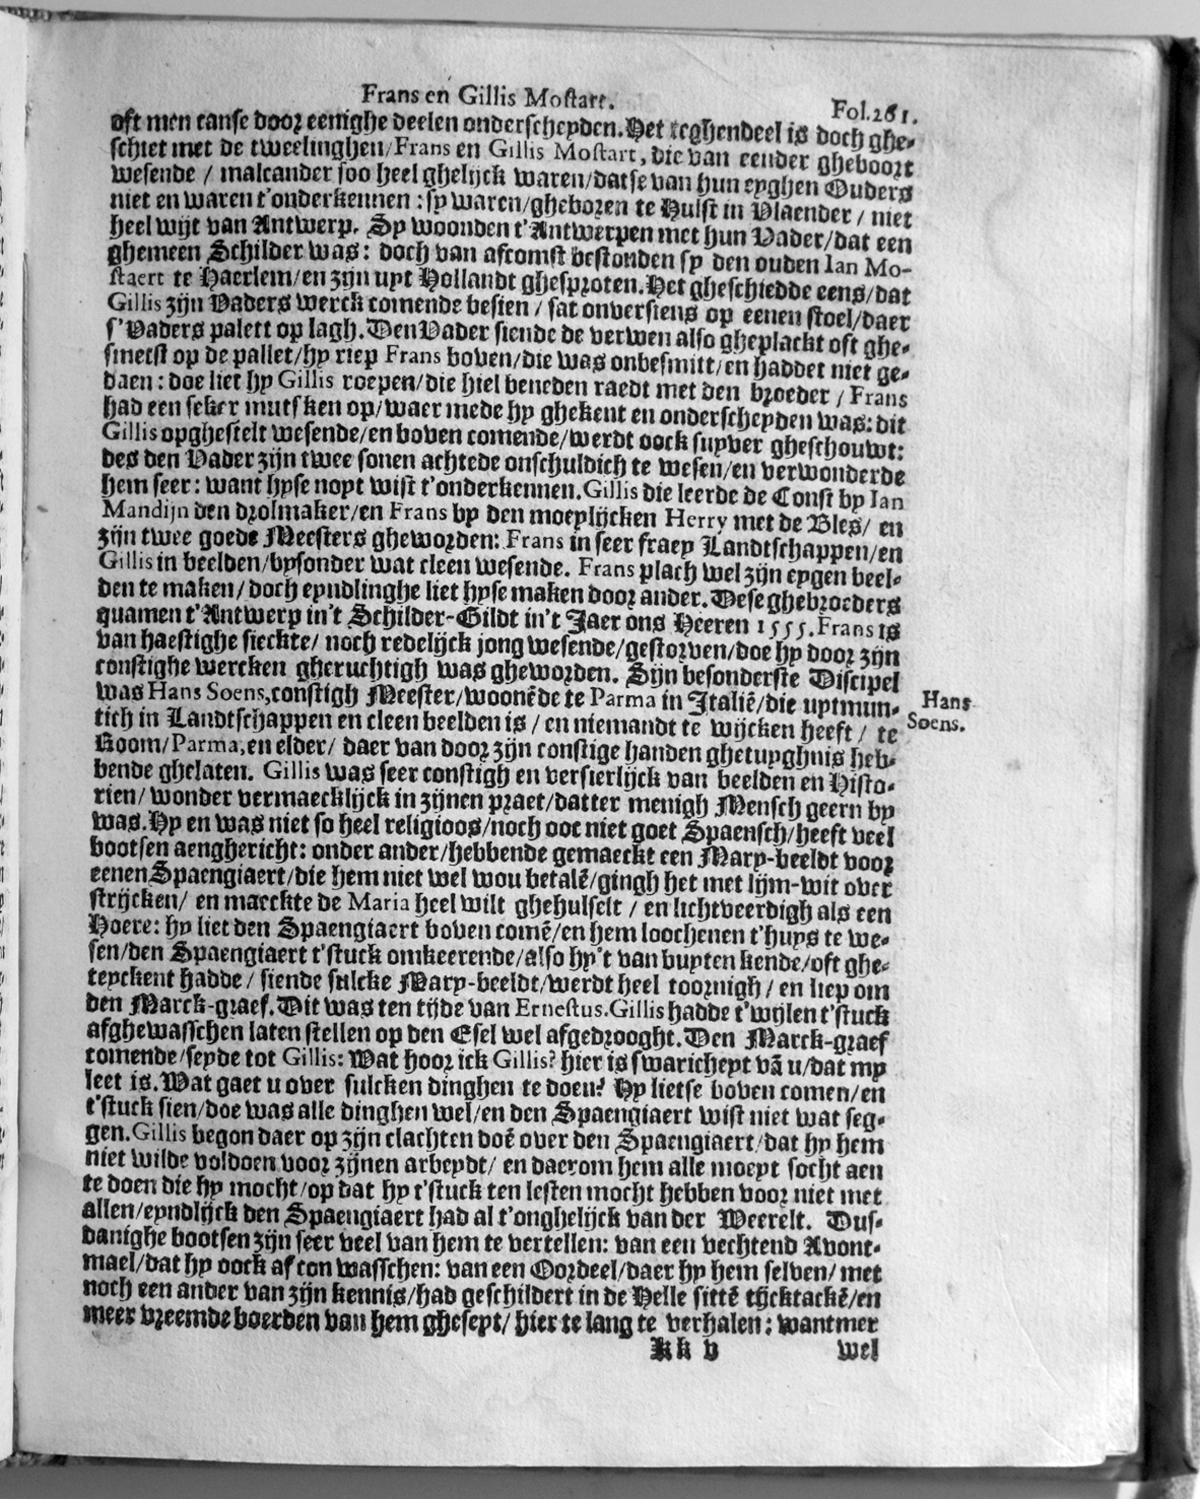 Frans en Gillis Mostart.
Fol.261.
oft men canse door eenighe deelen onderscheyden. Het teghendeel is doch ghe-
schiet met de tweelinghen/Frans en Gillis Mostart, die van eender gheboort
wesende / malcander soo heel ghelijck waren/datse van hun eyghen Ouders
niet en waren t'onderkennen : sy waren/gheboren te Hulst in Vlaender / niet
heel wijt van Antwerp. Sy woonden t'Antwerpen met hun Vader/dat een
ghemeen Schilder was: doch van afcomst bestonden sy den ouden Ian Mo-
staert te Haerlem/en zijn uyt Hollandt ghesproten. Het gheschiedde eens/dat
Gillis zijn Vaders werck comende besien / sat onversiens op eenen stoel/daer
s'Vaders palett op lagh. Den Vader siende de verwen also gheplackt oft ghe-
smetst op de pallet/hy riep Frans boven/die was onbesmitt/en haddet niet ge-
daen: doe liet hy Gillis roepen/die hiel beneden raedt met den broeder / Frans
had een seker mutsken op/waer mede hy ghekent en onderscheyden was: dit
Gillis opghestelt wesende/en boven comende/werdt oock suyver gheschouwt:
des den Vader zijn twee sonen achtede onschuldich te wesen/en verwonderde
hem seer: want hyse noyt wist t'onderkennen. Gillis die leerde de Const by Ian
Mandijn den drolmaker/en Frans by den moeylijcken Herry met de Bles/ en
zijn twee goede Meesters gheworden: Frans in seer fraey Landtschappen/en
Gillis in beelden/bysonder wat cleen wesende. Frans plach wel zijn eygen beel-
den te maken/ doch eyndlinghe liet hyse maken door ander. Dese ghebroeders
quamen t'Antwerp in't Schilder-Gildt in't Jaer ons Heeren 1555. Frans is
van haestighe sieckte/ noch redelijck jong wesende/gestorven/doe hy door zijn
constighe wercken gheruchtigh was gheworden. Sijn besonderste Discipel
was Hans Soens, constigh Meester/woonēde te Parma in Italiē/die uytmun-
tich in Landtschappen en cleen beelden is / en niemandt te wijcken heeft / te
Room/Parma, en elder/ daer van door zijn constige handen ghetuyghnis heb-
bende ghelaten. Gillis was seer constigh en versierlijck van beelden en Histo-
rien/ wonder vermaecklijck in zijnen praet/datter menigh Mensch geern by
was. Hy en was niet so heel religioos/noch ooc niet goet Spaensch/heeft veel
bootsen aenghericht: onder ander/hebbende gemaeckt een Mary-beeldt voor
eenen Spaengiaert/die hem niet wel wou betalē/gingh het met lijm-wit over
strijcken/ en maeckte de Maria heel wilt ghehulselt / en lichtveerdigh als een
Hoere: hy liet den Spaengiaert boven comē/en hem loochenen t'huys te we-
sen/den Spaengiaert t'stuck omkeerende/also hy't van buyten kende/oft ghe-
teyckent hadde/ siende sulcke Mary-beeldt/werdt heel toornigh / en liep om
den Marck-graef. Dit was ten tijde van Ernestus. Gillis hadde t'wijlen t'stuck
afghewasschen laten stellen op den Esel wel afgedrooght. Den Marck-graef
comende/seyde tot Gillis: Wat hoor ick Gillis? hier is swaricheyt vā u/dat my
leet is. Wat gaet u over sulcken dinghen te doen? Hy lietse boven comen/en
t'stuck sien/doe was alle dinghen wel/en den Spaengiaert wist niet wat seg-
gen. Gillis begon daer op zijn clachten doē over den Spaengiaert/dat hy hem
niet wilde voldoen voor zijnen arbeydt/ en daerom hem alle moeyt socht aen
te doen die hy mocht/op dat hy t'stuck ten lesten mocht hebben voor niet met
allen/eyndlijck den Spaengiaert had al t'onghelijck van der Weerelt. Dus-
danighe bootsen zijn seer veel van hem te vertellen: van een vechtend Avont-
mael/dat hy oock af con wasschen: van een Oordeel/daer hy hem selven/ met
noch een ander van zijn kennis/had geschildert in de Helle sittē tijcktackē/en
meer vreemde boerden van hem gheseyt/ hier te lang te verhalen: want mer
Hans
Soens.
kk v
wel